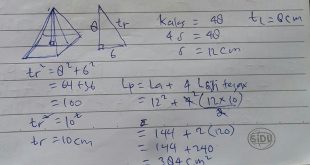 8 tr
6
Kalas = 48 t = 8 cm
4 s = 48
s = 12 cm
tr² = 8² + 6²
= 64 + 36
= 100
tr² = 10²
tr = 10 cm
Lp = La + 4 Lsgi tegak
= 12² + 4 (12 × 10)
2
= 144 + 2 (120)
= 144 + 240
= 384 cm²
SIDU